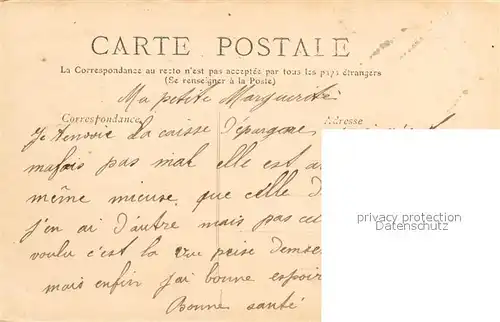 CARTE POSTALE
La Correspondance au recto n'est pas acceptée par tous les pays étrangers
(Se renseigner à la Poste)
Ma petite Marguerite
Correspondance
Adresse
Je tenvoie la caisse d'épargne
pas mal elle est
même mieuse que celle
j'en ai d'autre mais pas
voulu c'est la vue prise
mais enfin j'ai bonne espoir
Bonne santé
privacy protection
Datenschutz